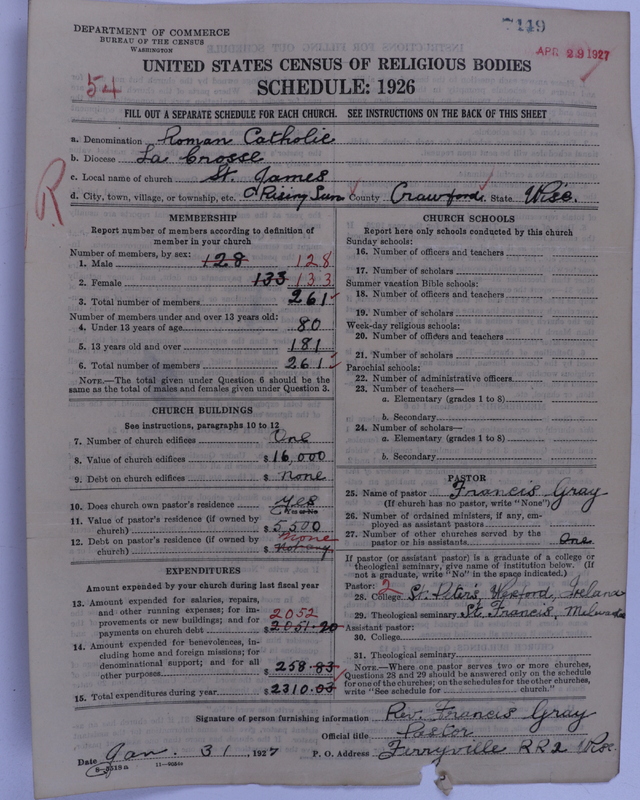 7119
DEPARTMENT OF COMMERCE
BUREAU OF THE CENSUS
WASHINGTON
APR 29 1927
UNITED STATES CENSUS OF RELIGIOUS BODIES
54
SCHEDULE: 1926
FILL OUT A SEPARATE SCHEDULE FOR EACH CHURCH. SEE INSTRUCTIONS ON THE BACK OF THIS SHEET
a. Denomination Roman Catholic
b. Diocese La Crosse
c. Local name of church St. James
d. City, town, village, or township, etc. Rising Sun County Crawford State Wis.
R
MEMBERSHIP
Report number of members according to definition of
member in your church
Number of members, by sex:
1. Male 128 128
2. Female 133 133
3. Total number of members 261
Number of members under and over 13 years old:
4. Under 13 years of age 80
5. 13 years old and over 181
6. Total number of members 261
NOTE.—The total given under Question 6 should be
same as the total of males and females given under Question 3.
CHURCH BUILDINGS
See instructions, paragraphs 10 to 12
7. Number of church edifices One
8. Value of church edifices $16,000
9. Debt on church edifices $ None
10. Does church own pastor's residence? Yes
(Yes or No)
11. Value of pastor's residence (if owned by
church) $5,500
12. Debt on pastor's residence (if owned by None
church) $
EXPENDITURES
Amount expended by your church during last fiscal year
13. Amount expended for salaries, repairs,
and other running expenses; for im-
provements or new buildings; and for 2052
payments on church debt $2051.20
14. Amount expended for benevolences, in-
cluding home and foreign missions; for
denominational support; and for all
other purposes $258.83
15. Total expenditures during year $2310.03
CHURCH SCHOOLS
Report here only schools conducted by this church
Sunday schools:
16. Number of officers and teachers
17. Number of scholars
Summer vacation Bible schools:
18. Number of officers and teachers
19. Number of scholars
Week-day religious schools:
20. Number of officers and teachers
21. Number of scholars
Parochial schools:
22. Number of administrative officers
23. Number of teachers—
a. Elementary (grades 1 to 8)
b. Secondary
24. Number of scholars—
a. Elementary (grades 1 to 8)
b. Secondary
PASTOR
25. Name of pastor Francis Gray
(If church has no pastor, write "None")
26. Number of ordained ministers, if any, em-
ployed as assistant pastors
27. Number of other churches served by the
pastor or his assistants One
If pastor (or assistant pastor) is a graduate of a college or
theological seminary, give name of institution below. (If
not a graduate, write "No" in the space indicated.)
Pastor: 2
28. College St. Peters, Wexford, Ireland
29. Theological seminary St. Francis, Milwaukee
Assistant pastor:
30. College
31. Theological seminary
NOTE.—Where one pastor serves two or more churches,
Questions 28 and 29 should be answered only on the schedule
for one of the churches; on the schedules for the other churches,
write "See schedule for church."
Signature of person furnishing information Rev. Francis Gray
Official title Pastor
Date Jan. 31 1927 P. O. Address Ferryville RR2 Wisc.
8-5518a